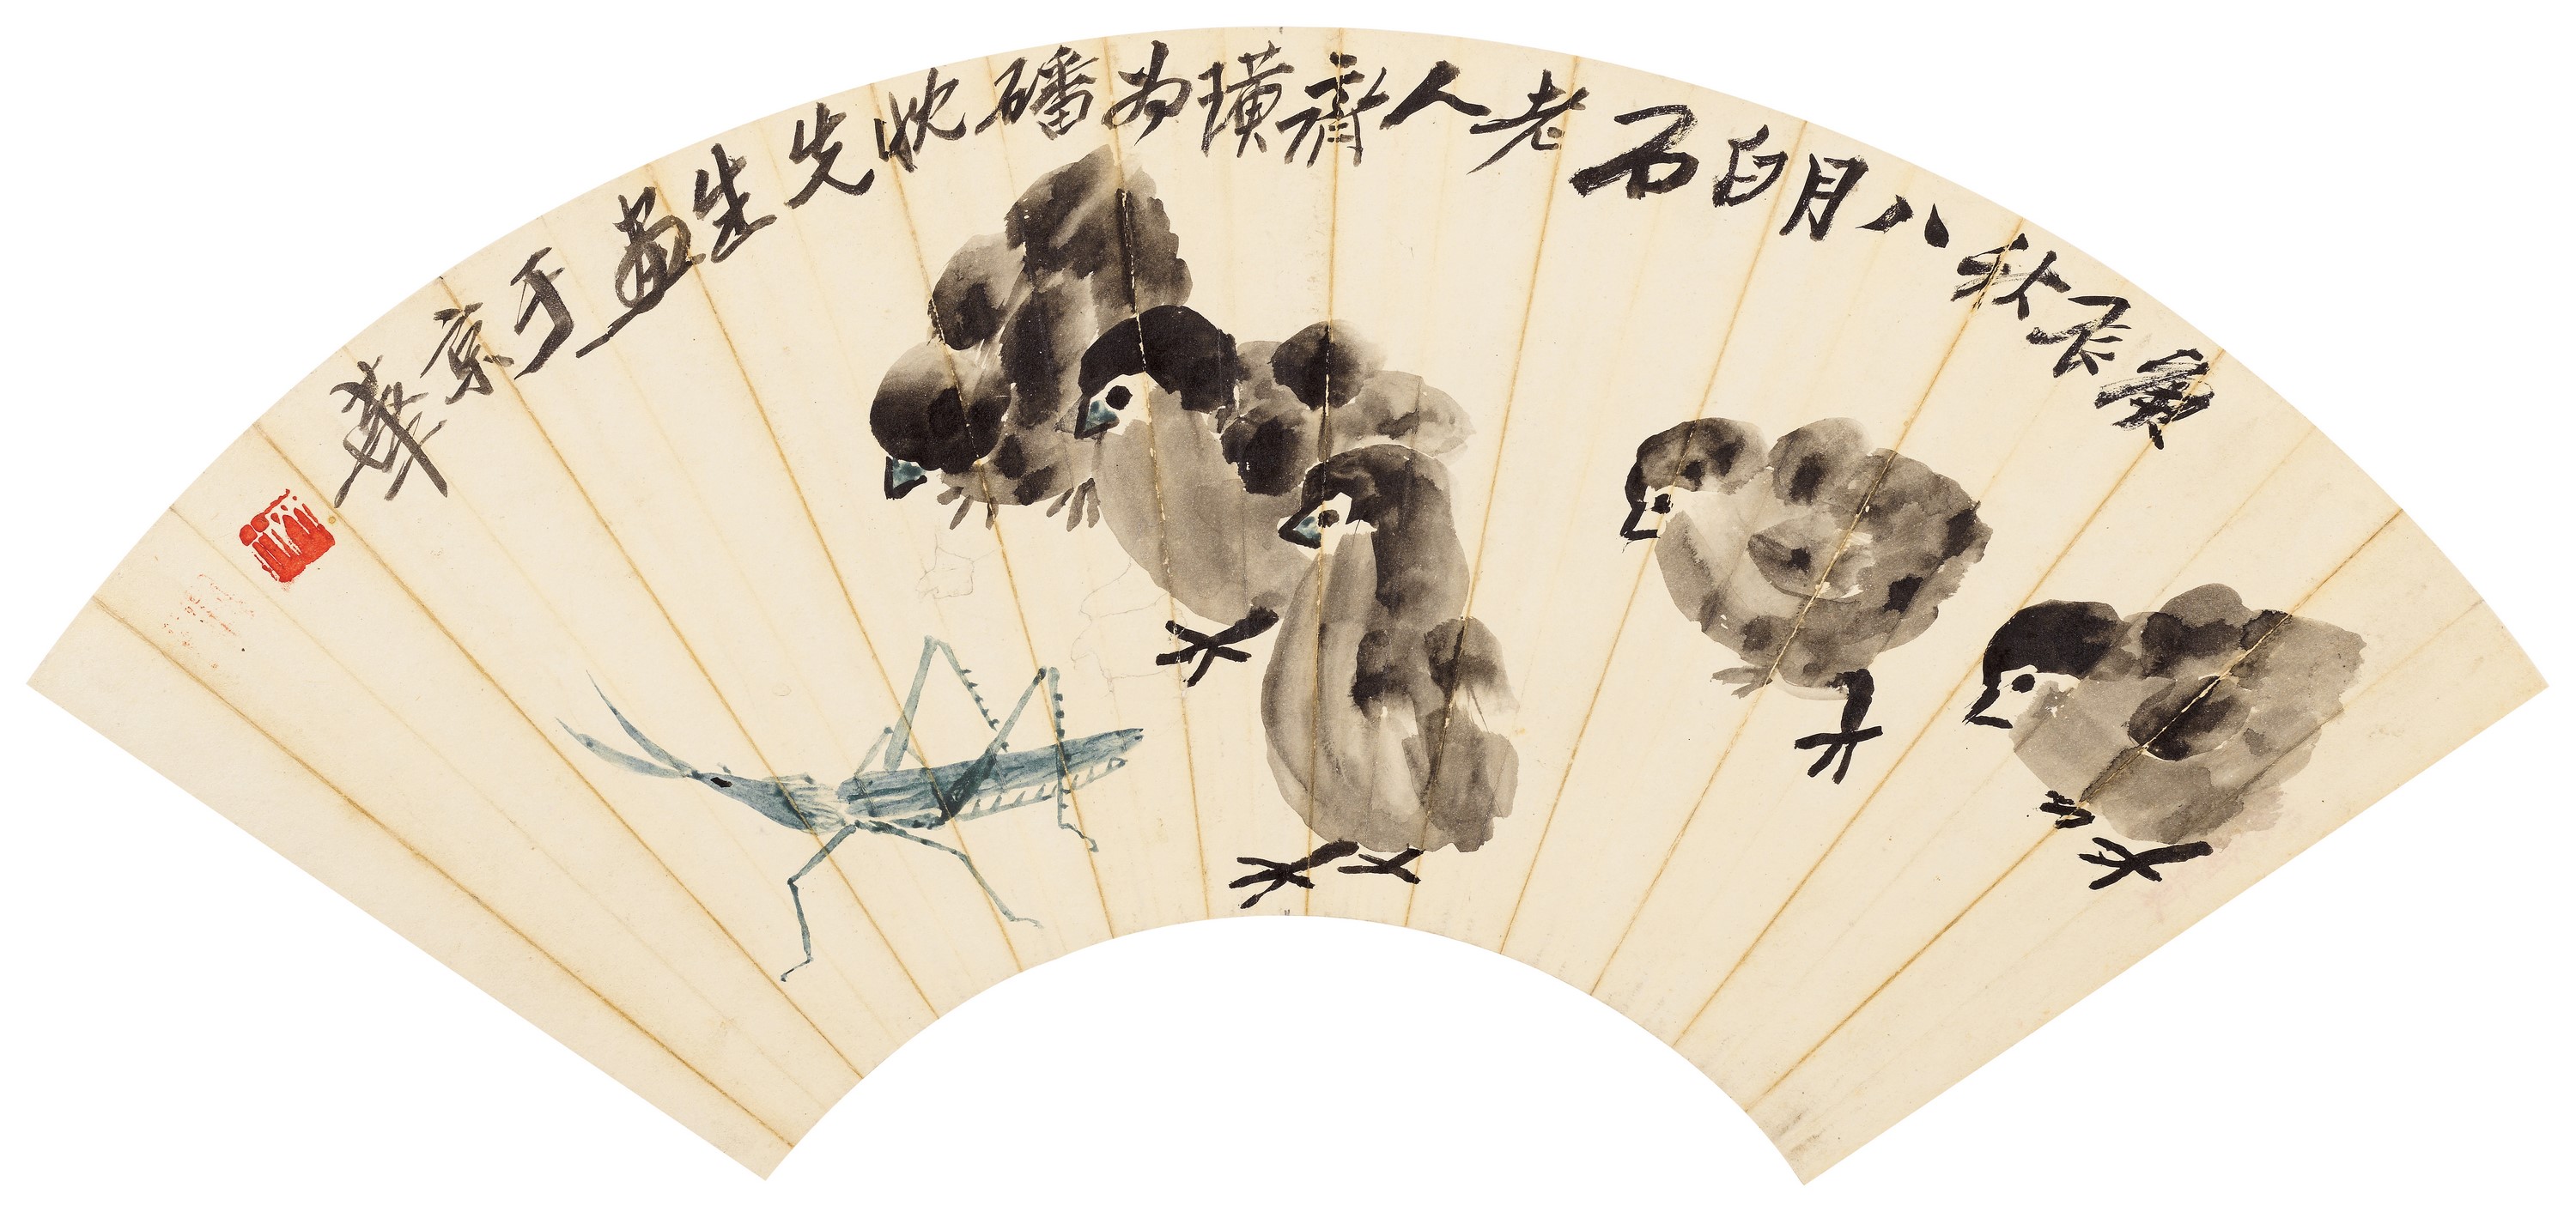 庚辰秋八月白石老人齊璜為磻忱先生畫于京華